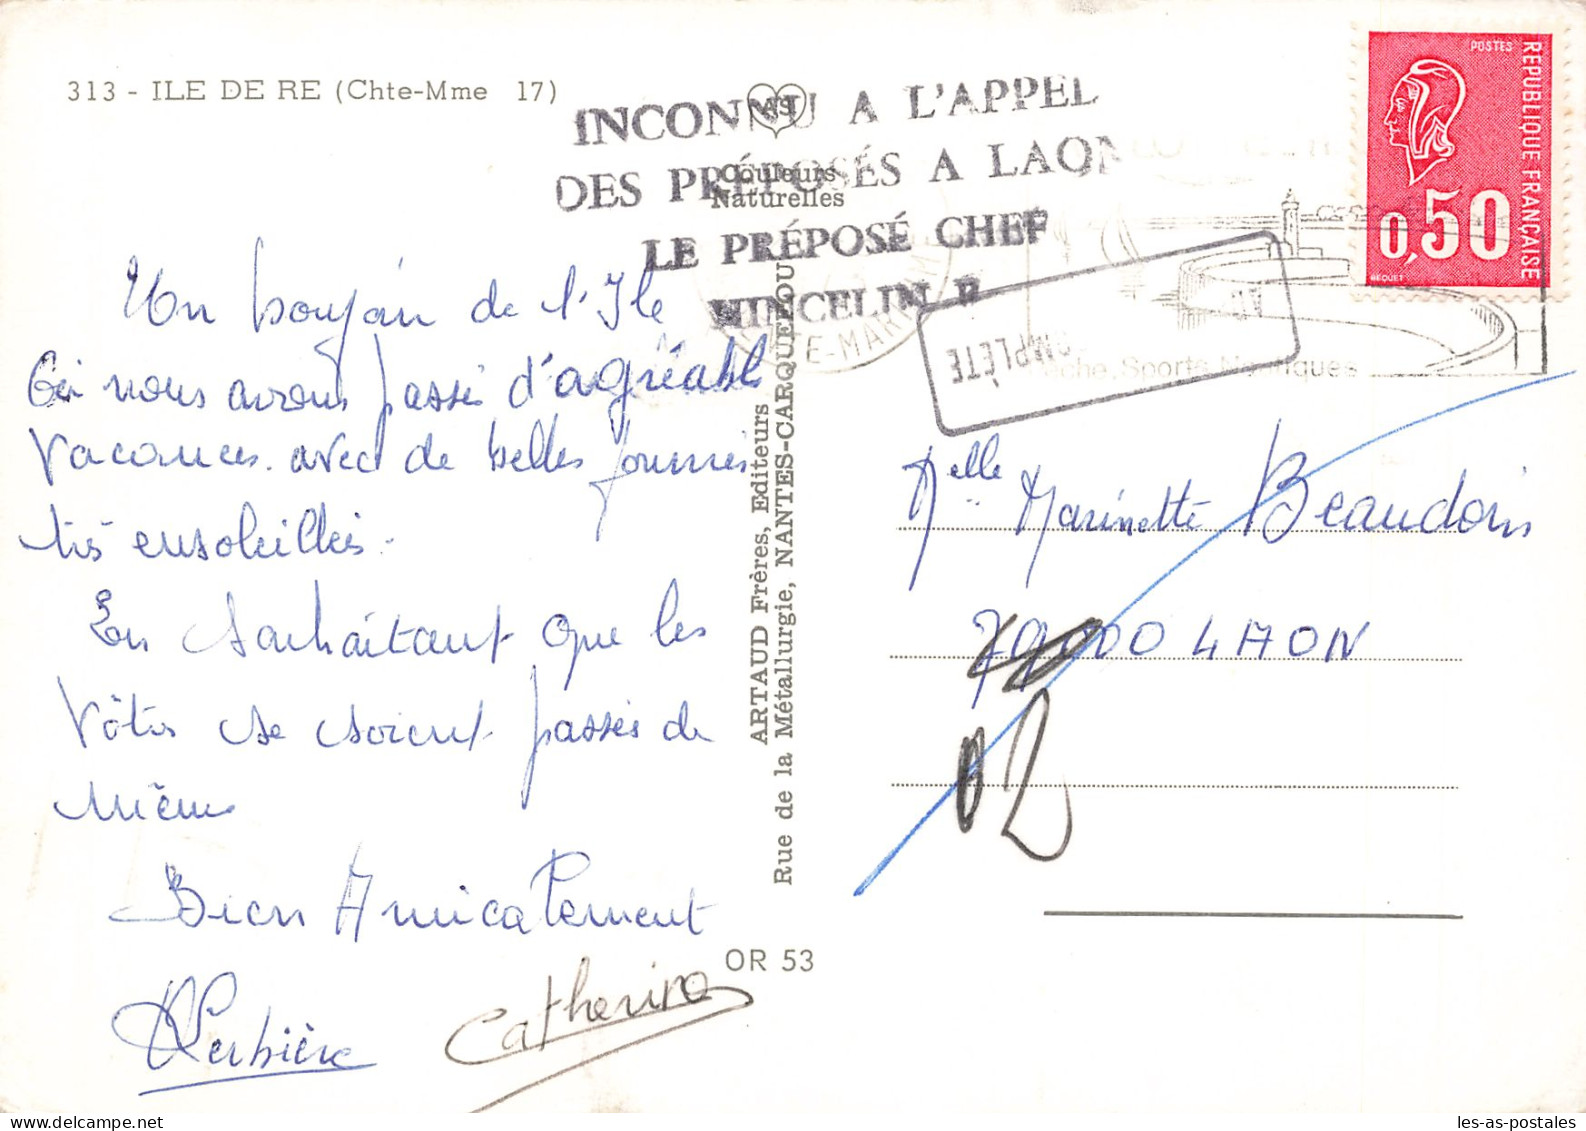 313 - ILE DE RE (Chte-Mme 17)
INCONNU A L'APPEL
DES PRÉPOSÉS A LAON
LE PRÉPOSÉ CHEF
MINCELIN
Couleurs
Naturelles
POSTES
REPUBLIQUE FRANÇAISE
0,50
BEQUET
Pêche, Sports Nautiques
OMPLÈTE
Un bonjour de l'Ile
Où nous avons passé d'agréable
Vacances avec de belles journées
très ensoleillées.
En souhaitant que les
Vôtres se soient passés de
même
Bien Amicalement
Catherine
Melle Marinette Beaudoin
LAON
02
ARTAUD Frères, Editeurs
Rue de la Métallurgie, NANTES-CARQUEFOU
OR 53
les-as-postales